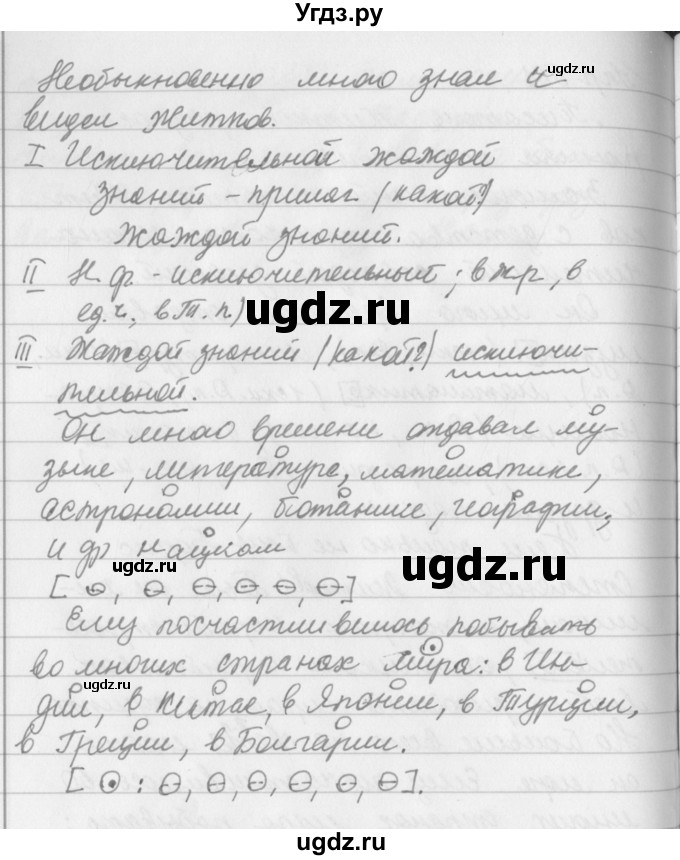 Угдз.ру
Необыкновенно много знал и
видел Житков.
I Исключительной жаждой
знаний - прилаг (какой?)
Жаждой знаний.
II Н. ф - исключительный; в ж р, в
ед. ч., в Т. п.)
III Жаждой знаний (какой?) исключи-
тельной.
Он много времени отдавал му-
зыке, литературе, математике,
астрономии, ботанике, географии,
и др наукам
[⊖, ⊖, ⊖, ⊖, ⊖, ⊖]
Ему посчастливилось побывать
во многих странах мира: в Ин-
дии, в Китае, в Японии, в Турции,
в Греции, в Болгарии.
[⊙ : ⊖, ⊖, ⊖, ⊖, ⊖, ⊖].
ugdz.ru
ugdz.ru
ugdz.ru
ugdz.ru
ugdz.ru
ugdz.ru
ugdz.ru
ugdz.ru
ugdz.ru
ugdz.ru